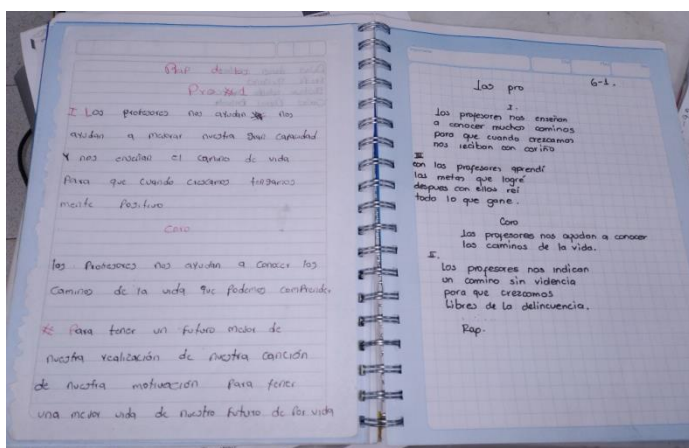 Plan de ideas
Pro Rad
I Los profesores nos ayudan nos
ayudan a mejorar nuestra capacidad
Y nos enseñan el camino de vida
Para que cuando crezcamos tengamos
mente Positiva
Coro
los Profesores nos ayudan a Conocer los
Caminos de la vida que Podemos Comprender
Para tener un futuro mejor de
nuestra realización de nuestra canción
de nuestra motivación Para tener
una mejor vida de nuestro futuro de Por vida
Los pro 6-1.
I.
Los profesores nos enseñan
a conocer muchos caminos
para que cuando crezcamos
nos reciban con cariño
II
Con los profesores aprendí
las metas que logré
despues con ellos reí
todo lo que gane.
Coro
Los profesores nos ayudan a conocer
los caminos de la vida.
II.
Los profesores nos indican
un camino sin videncia
para que crezcamos
Libres de la delincuencia.
Rap.